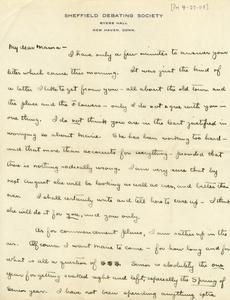 SHEFFIELD DEBATING SOCIETY
BYERS HALL
NEW HAVEN, CONN.
[PM 4-27-05]
My dear Mama -
I have only a few minutes to answer your
letter which came this morning. It was just the kind of
a letter I like to get from you - all about the old town and
the place and the flowers - only I do not agree with you - in
one thing. I do not think you are in the least justified in
worrying about Marie. She has been working too hard -
and that more than accounts for everything - provided that
there is nothing radically wrong. I am very sure that by
next August she will be looking as well as ever, and better than
ever. I shall certainly write and tell her to ease up - I think
she will do it for you, and you only.
As for commencement plans, I am rather up in the
air. Of course I want Marie to come - for how long and for
what is all a question of $$$. Senior is absolutely the one
year for getting soaked right and left, especially the Spring of
Senior year. I have not been spending anything extra